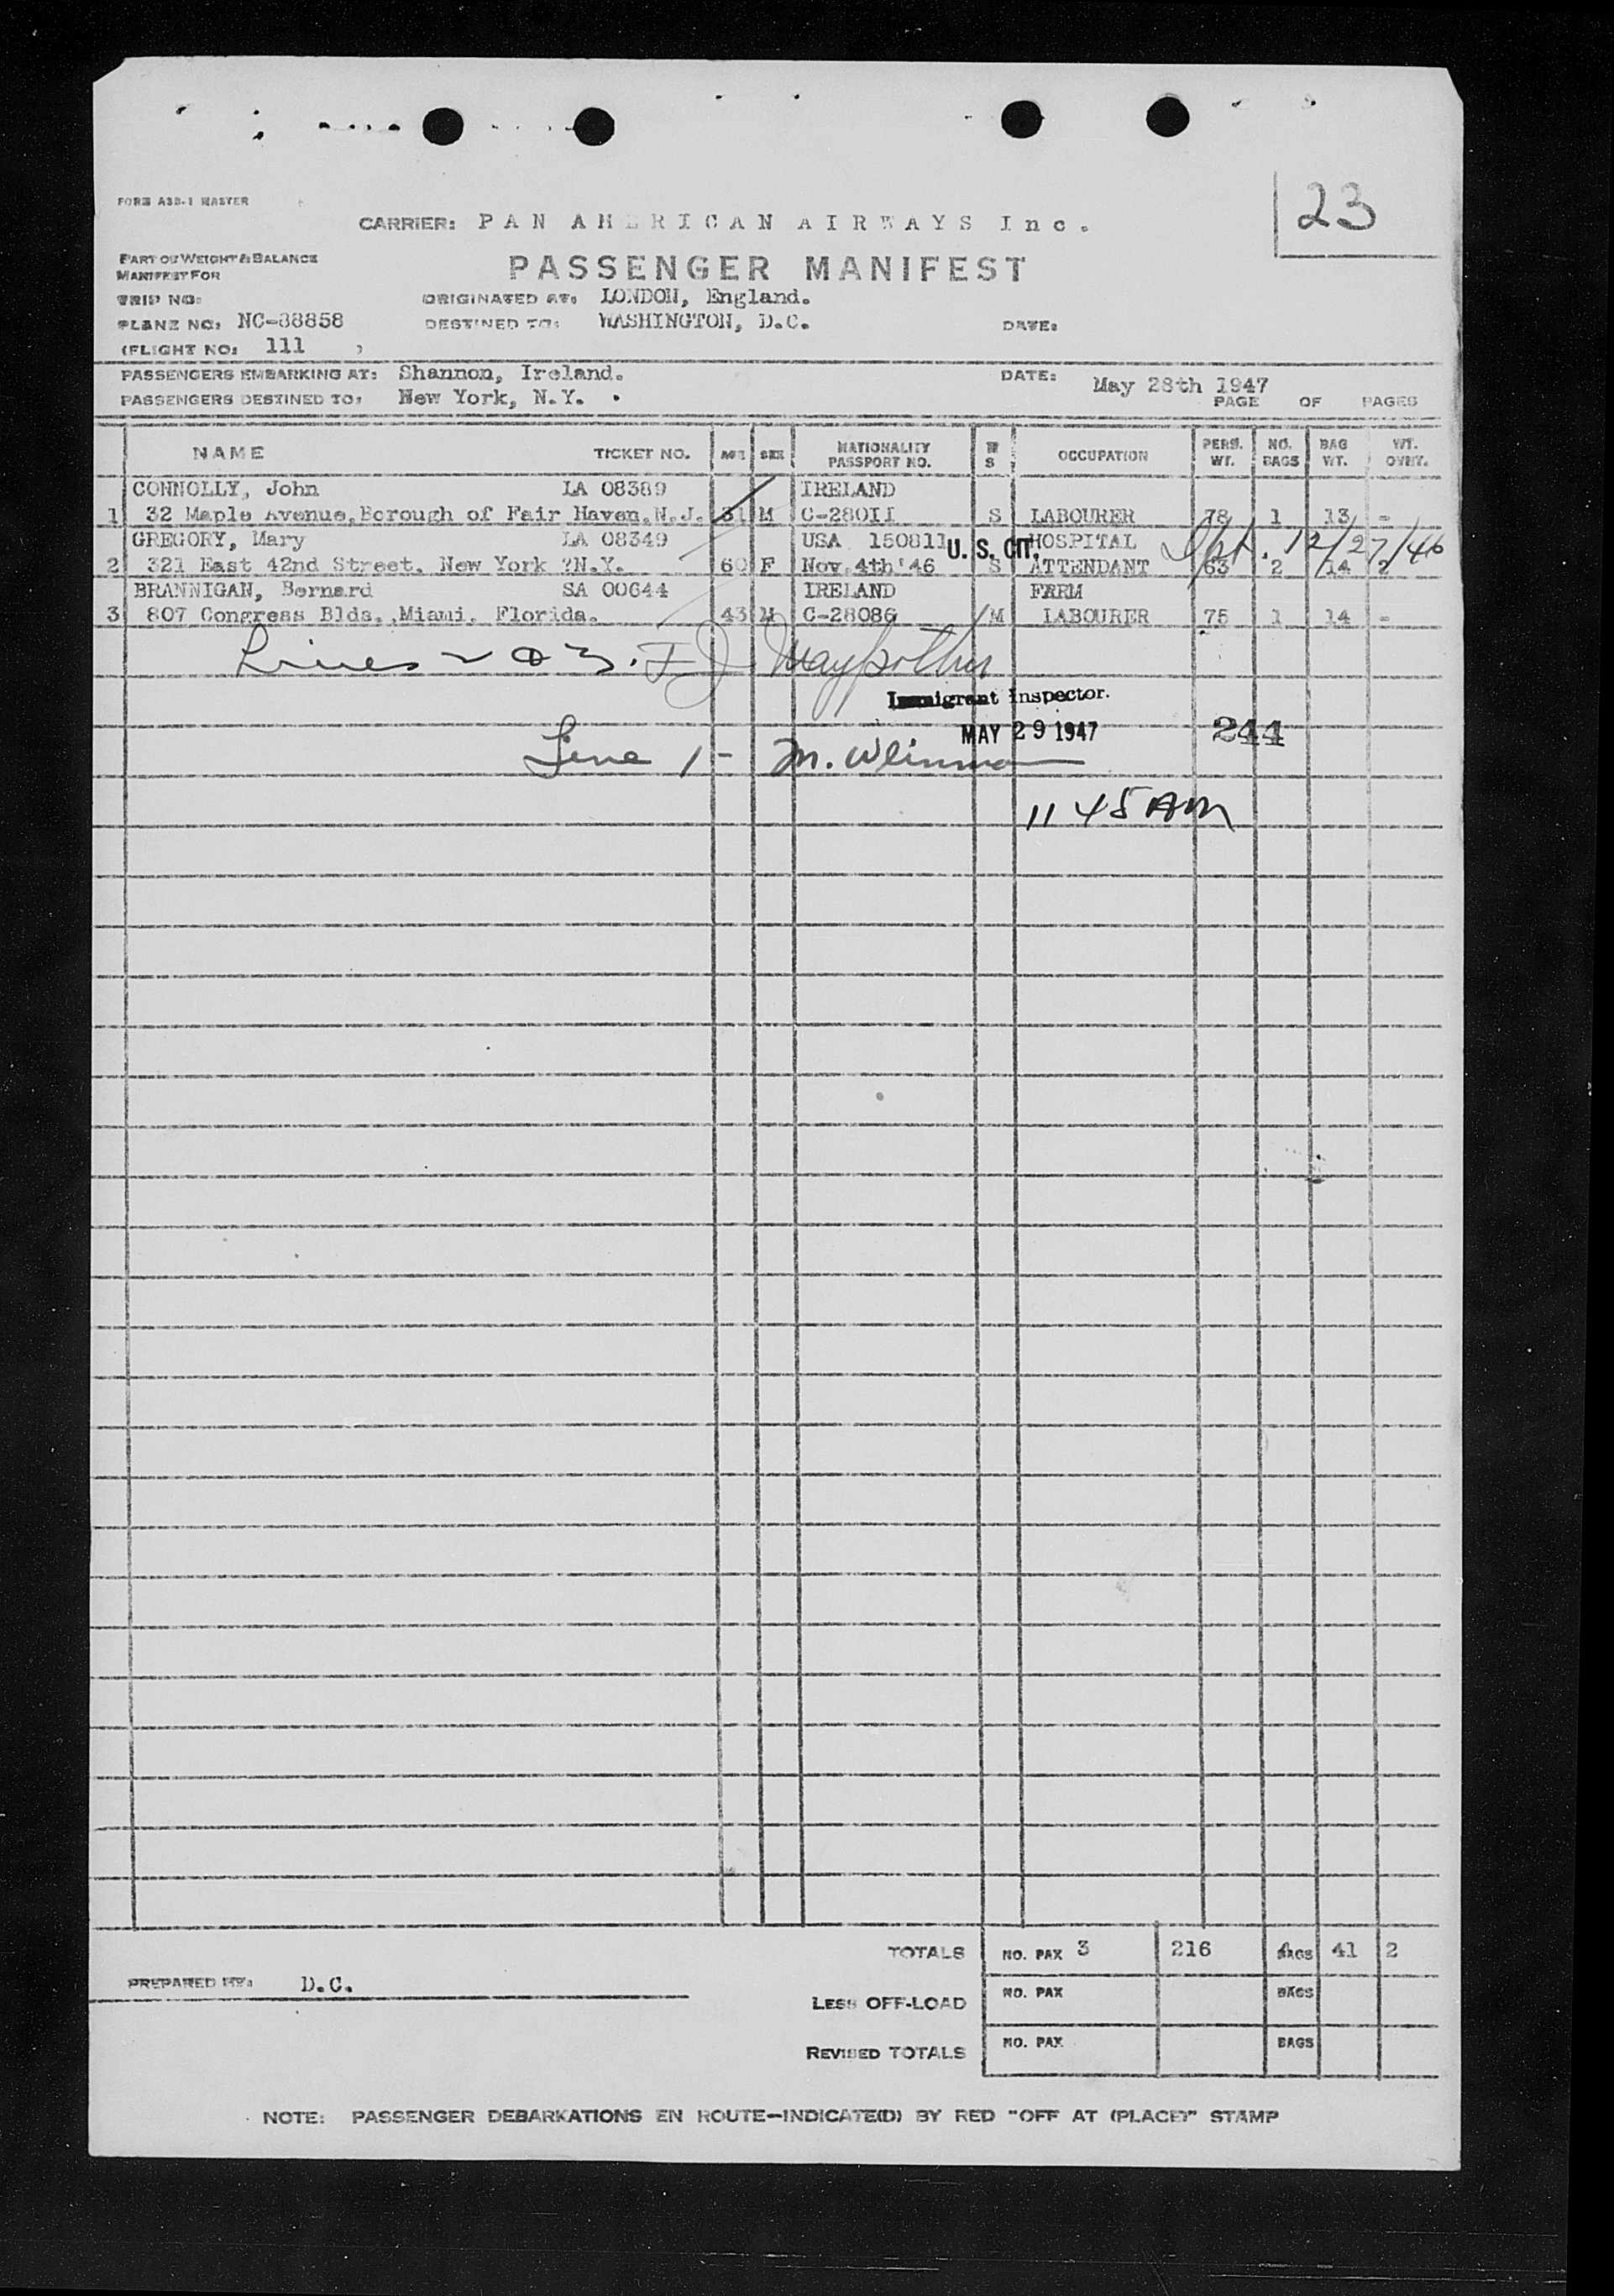 23
FORM ASB-1 MASTER
CARRIER: PAN AMERICAN AIRWAYS Inc.
PART OF WEIGHT & BALANCE
MANIFEST FOR
PASSENGER MANIFEST
TRIP NO: ORIGINATED AT: LONDON, England.
PLANE NO: NC-88858 DESTINED TO: WASHINGTON, D.C. DATE:
(FLIGHT NO: 111 )
PASSENGERS EMBARKING AT: Shannon, Ireland. DATE: May 28th 1947
PASSENGERS DESTINED TO: New York, N.Y. . PAGE OF PAGES
NAME TICKET NO. AGE SEX NATIONALITY PASSPORT NO. M S OCCUPATION PERS. WT. NO. BAGS BAG WT. WT. OVHT.
CONNOLLY, John LA 08389 IRELAND
1 32 Maple Avenue,Borough of Fair Haven.N.J. 31 M C-28011 S LABOURER 78 1 13 -
GREGORY, Mary LA 08349 USA 150811 U. S. CIT. HOSPITAL 12/27/46
2 321 East 42nd Street. New York ?N.Y. 60 F Nov.4th'46 S ATTENDANT 63 2 14 2
BRANNIGAN, Bernard SA 00644 IRELAND FARM
3 807 Congress Blds.,Miami. Florida. 43 M C-28086 M LABOURER 75 1 14 -
Lines 2 & 3. F J
Immigrant Inspector.
MAY 29 1947 244
Line 1 - M. Weinman
11 45 AM
TOTALS NO. PAX 3 216 BAGS 41 2
PREPARED BY: D.C.
LESS OFF-LOAD NO. PAX BAGS
REVISED TOTALS NO. PAX BAGS
NOTE: PASSENGER DEBARKATIONS EN ROUTE—INDICATE(D) BY RED "OFF AT (PLACE)" STAMP